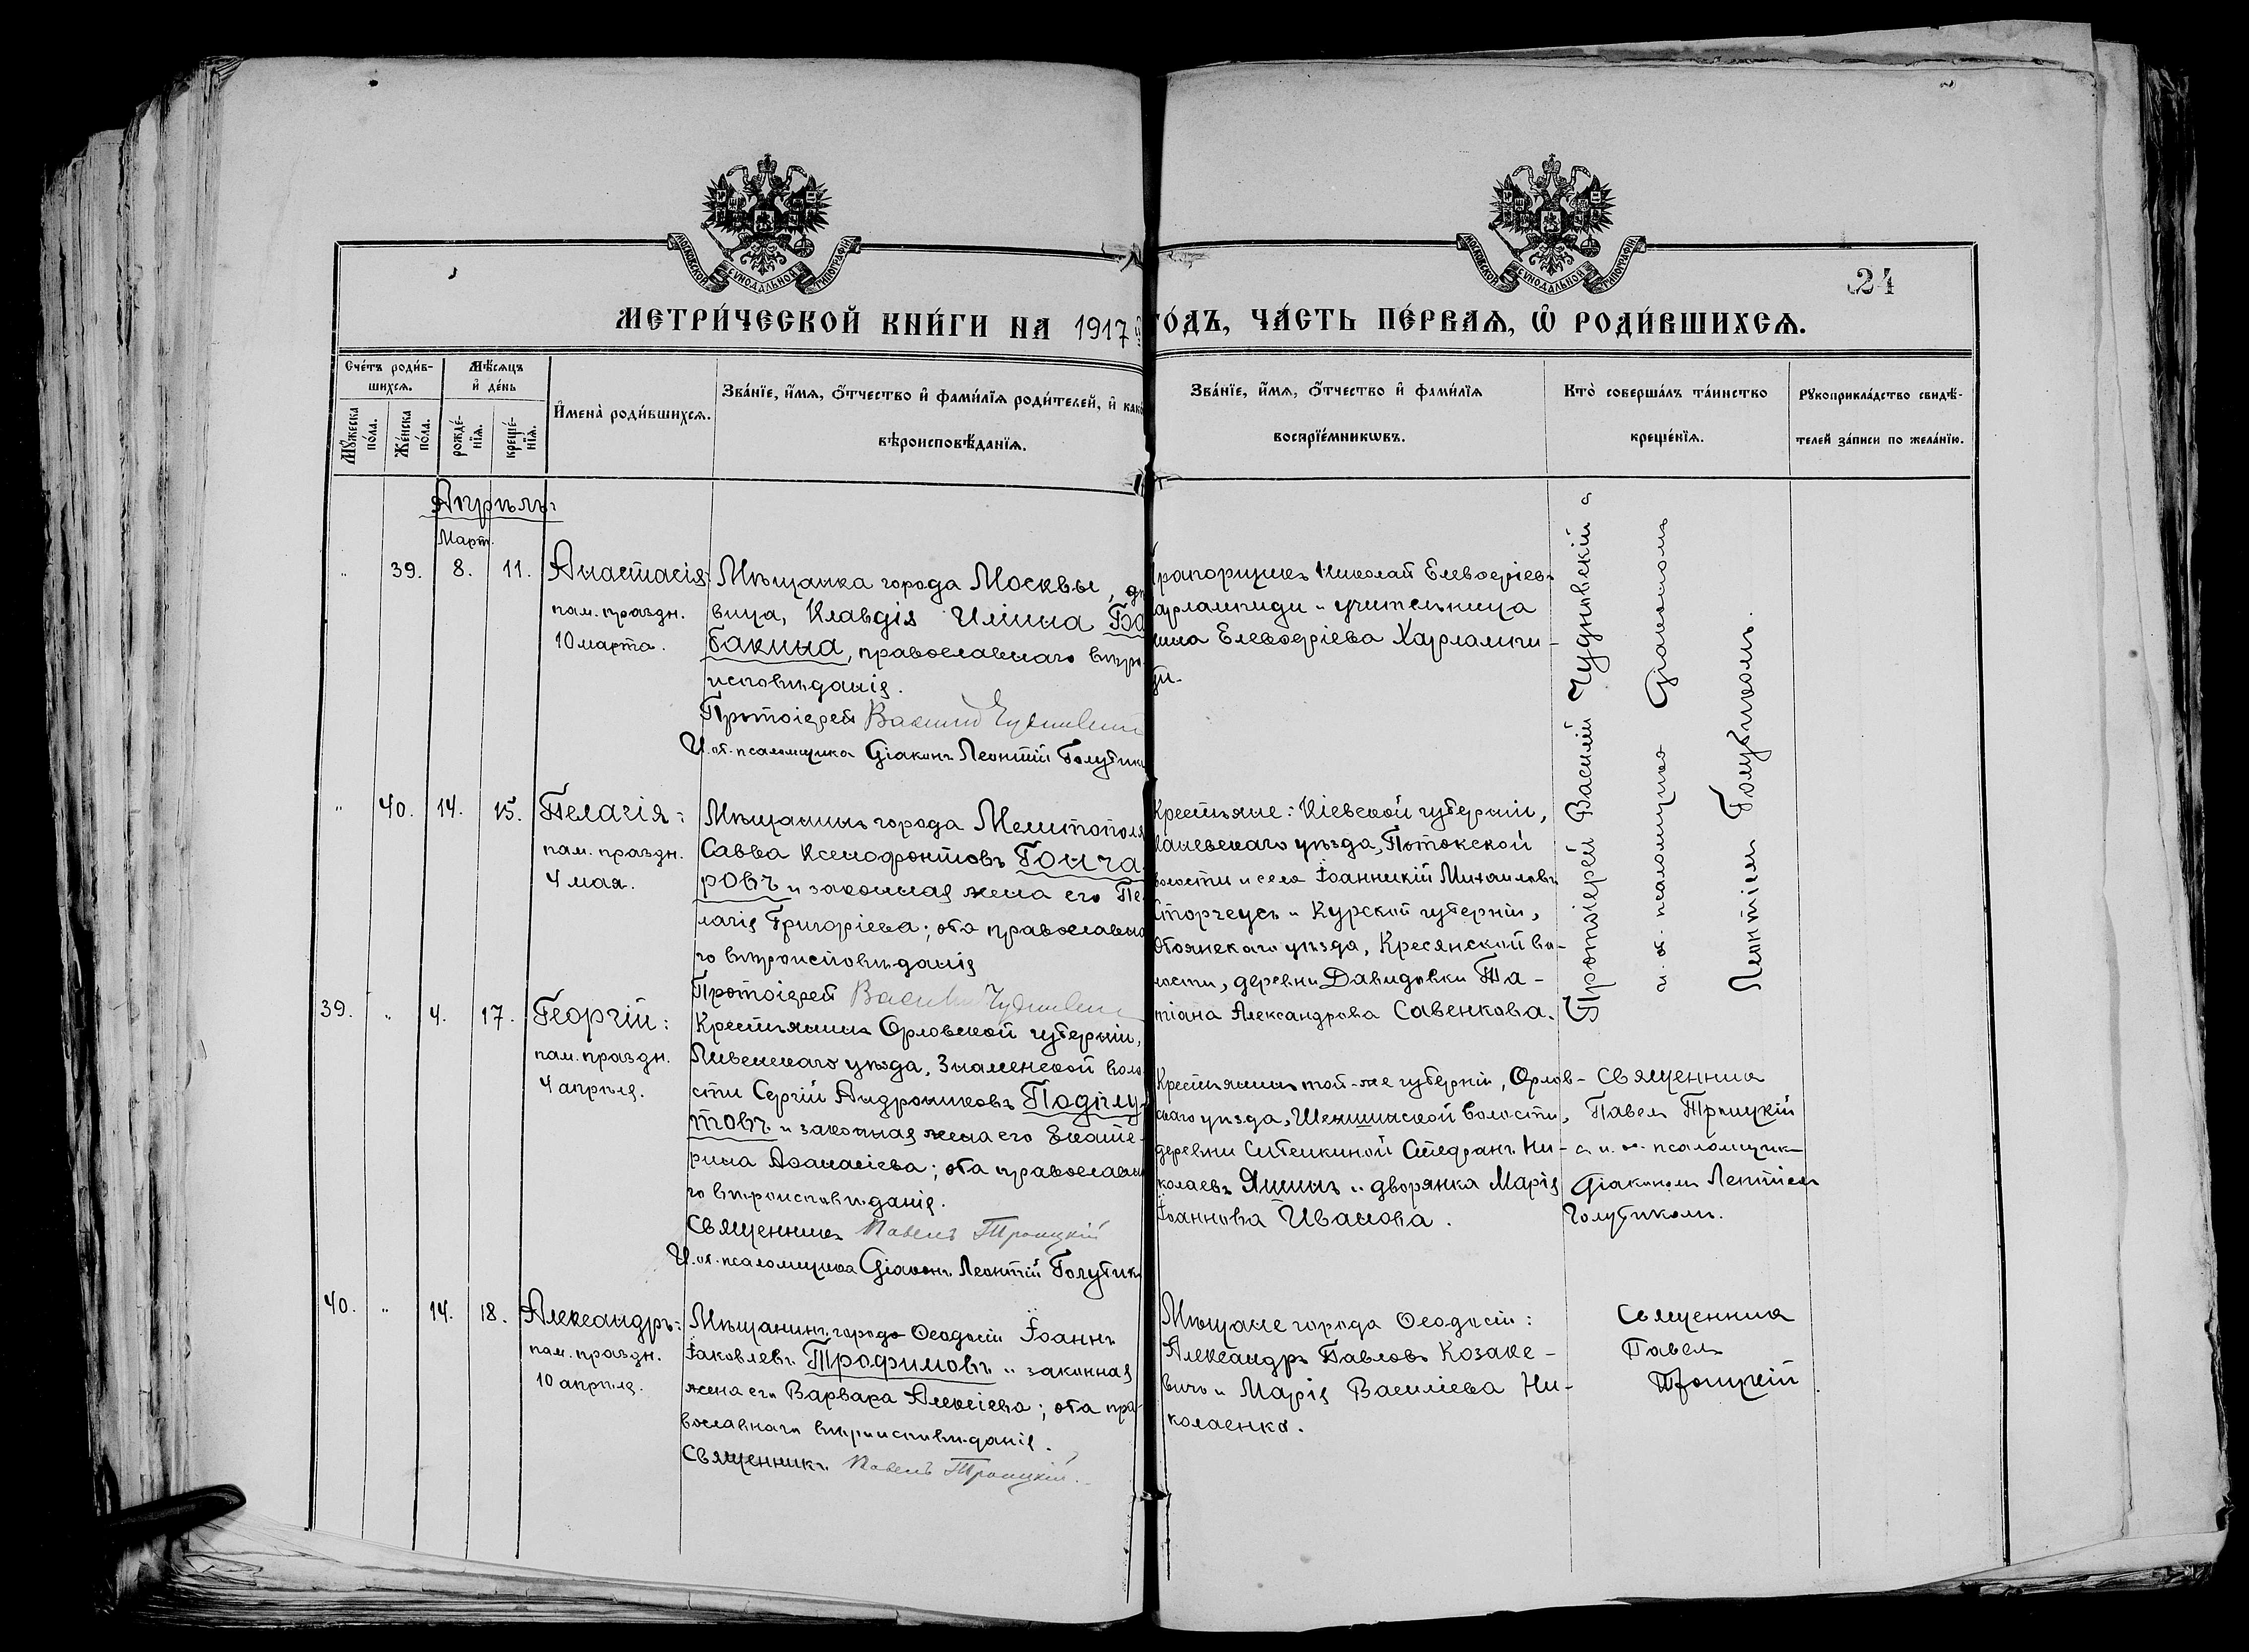 МОСКОВСКОЙ СУНОДАЛЬНОЙ ТИПОГРАФІИ
МОСКОВСКОЙ СУНОДАЛЬНОЙ ТИПОГРАФІИ
24
МЕТРИ́ЧЕСКОЙ КНИ́ГИ НА 1917
ГО́ДЪ, ЧА́СТЬ ПЕ́РВАѦ, Ѽ РОДИ́ВШИХСѦ.
Сче́тъ роди́в-
шихсѧ.
Мѣ́сѧцъ
и҆ де́нь
Мꙋ́жеска
по́ла.
Же́нска
по́ла.
рожде́-
нїѧ.
креще́-
нїѧ.
И҆мена̀ роди́вшихсѧ.
Зва́нїе, и҆́мѧ, о҆́тчество и҆ фами́лїѧ роди́телей, и҆ как
вѣроисповѣ́данїѧ.
Зва́нїе, и҆́мѧ, о҆́тчество и҆ фами́лїѧ
воспрїе́мникѡвъ.
Кто̀ соверша́лъ та́инство
креще́нїѧ.
Рꙋкоприкла́дство свидѣ́-
телей за́писи по жела́нїю.
Апрѣль
Март.
" 39. 8. 11. Анастасія:
пам. праздн.
10 марта.
Мѣщанка города Москвы, дѣ
вица, Клавдія Иліина Ба
бакина, православнаго вѣро-
исповѣданія.
Протоіерей Василій Чудновскій
И. об. псаломщика Діаконъ Леонтій Голубик
рапорщикъ Николай Елевферіев
арлампиди и учительница
ина Елевферіева Харлампи-
ди.
Протоіерей Василій Чудновскій с
и. об. псаломщика Діакономъ
Леонтіем Голубиком.
" 40. 14. 15. Пелагія:
пам. праздн.
4 мая.
Мѣщанинъ города Мелитополя
Савва Ксенофонтовъ Гонча
ровъ и законная жена его Пе
лагія Григоріева; оба православна
го вѣроисповѣданія
Протоіерей Василій Чудновскій
Крестьяне: Кіевской губерніи,
Каневскаго уѣзда, Потокской
волости и села Іоанникій Михаиловъ
Сторчеусъ и Курской губерніи,
Обоянскаго уѣзда, Кресянской во-
лости, деревни Давидовки Та-
тіана Александрова Савенкова.
39. " 4. 17. Георгій:
пам. праздн.
4 апрѣля.
Крестьянинъ Орловской губерніи,
Ливенскаго уѣзда, Знаменской воло
сти Сергій Андрониковъ Подплу
товъ и законная жена его Екате-
рина Аѳанасіева; оба православна
го вѣроисповѣданія.
Священникъ Павелъ Троицкій
И. об. псаломщика Діаконъ Леонтій Голубик
Крестьянинъ той-же губерніи, Орлов-
скаго уѣзда, Шеншинской волости,
деревни Ситенкиной Стефанъ Ни-
колаевъ Яшинъ и дворянка Марія
Іоаннова Иванова.
Священник
Павел Троицкій
с и. об. псаломщик
Діаконом Леонтіем
Голубиком.
40. " 14. 18. Александръ:
пам. праздн.
10 апрѣля.
Мѣщанинъ города Ѳеодосіи Іоаннъ
Іаковлевъ Трофимовъ и законная
жена его Варвара Алексіева; оба пра-
вославнаго вѣроисповѣданія.
Священникъ Павелъ Троицкій.
Мѣщане города Ѳеодосіи:
Александръ Павловъ Козаке-
вичъ и Марія Василіева Ни-
колаенко.
Священник
Павел
Троицкій